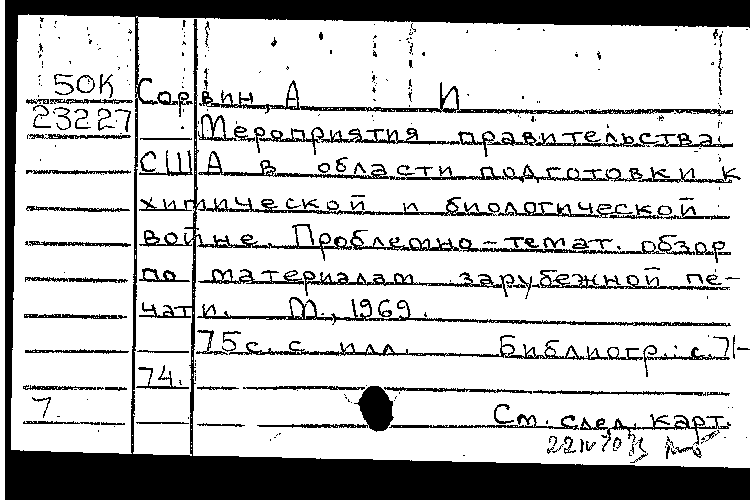 50К Сорвин, А И
23227 Мероприятия правительства
США в области подготовки к
химической и биологической
войне. Проблемно-темат. обзор
по материалам зарубежной пе-
чати. М., 1969.
75 с. с илл. Библиогр.: с. 71-
74.
7. См. след. карт.